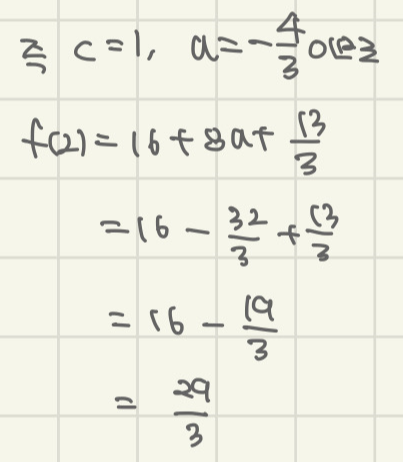 즉 c=1, a=-4/3 이므로
f(2)=16+8a+13/3
=16-32/3+13/3
=16-19/3
=29/3